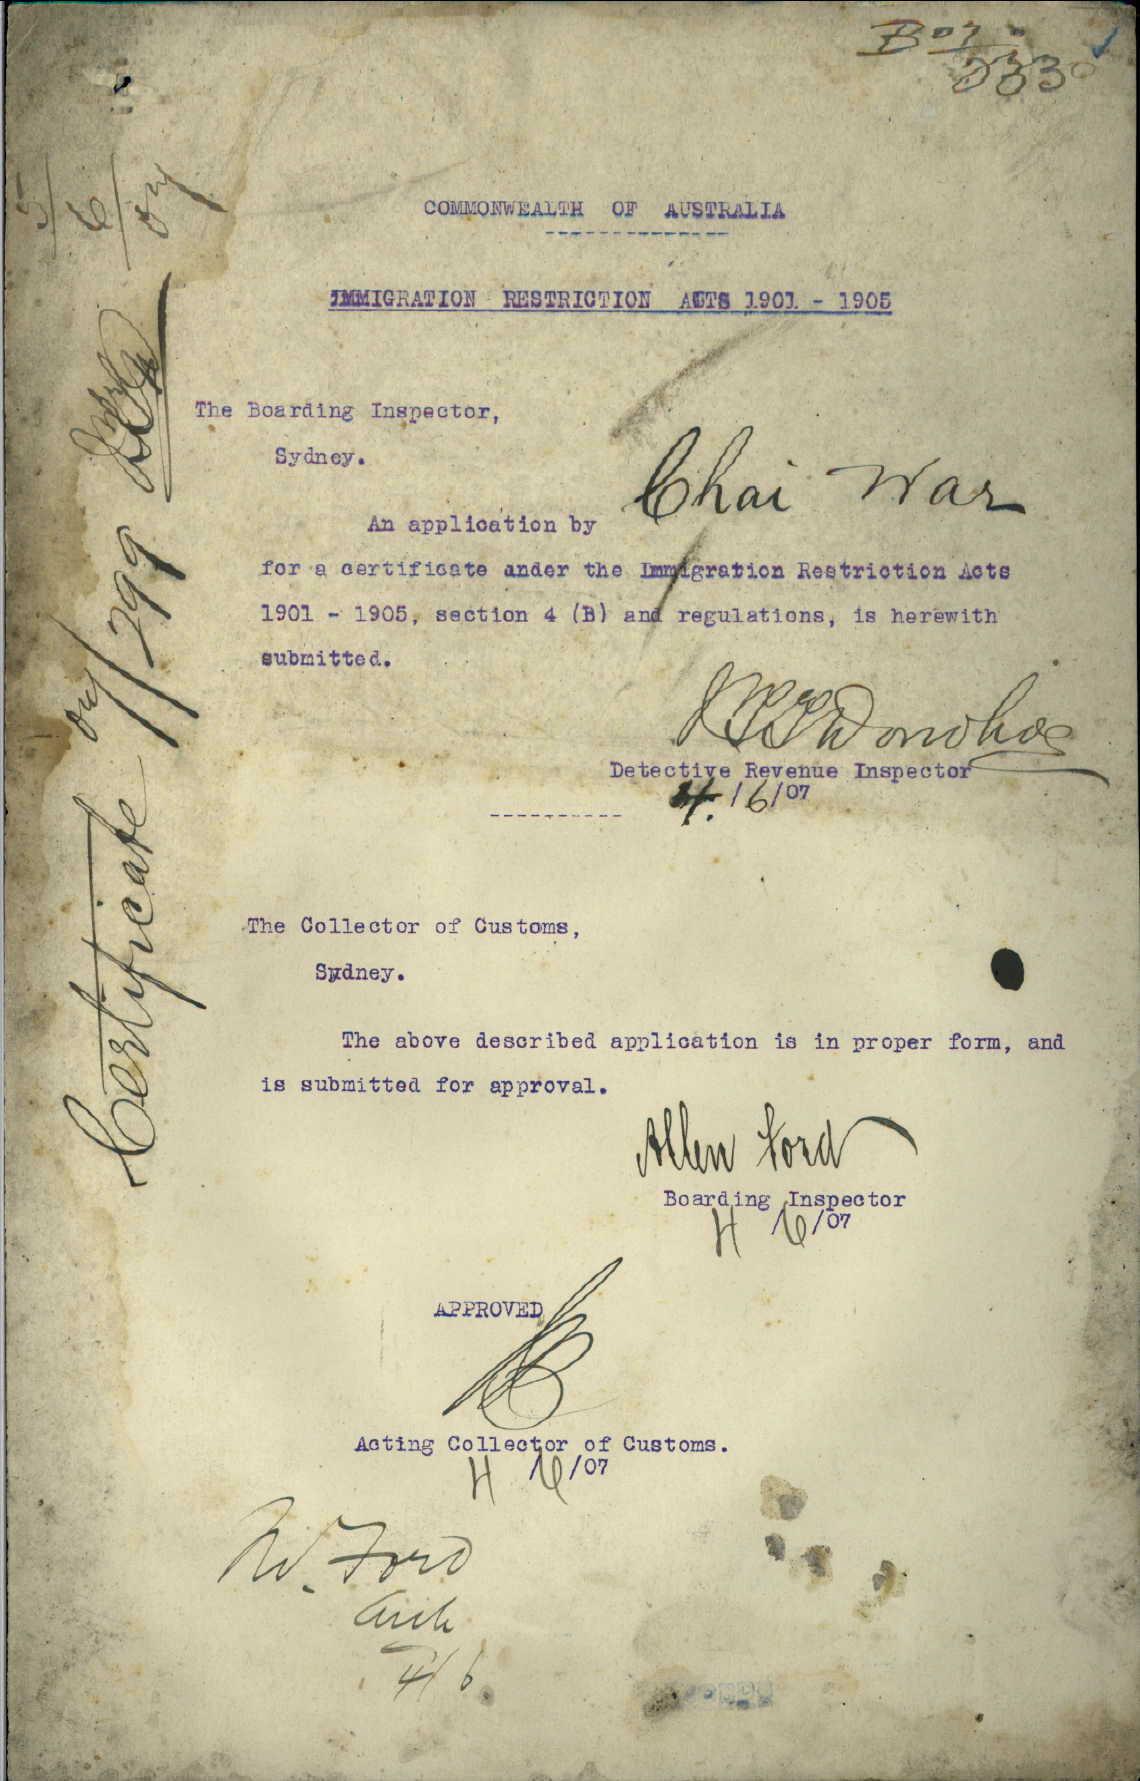 B07
3330
COMMONWEALTH OF AUSTRALIA
IMMIGRATION RESTRICTION ACTS 1901 - 1905
The Boarding Inspector,
Sydney.
An application by Chai War
for a certificate under the Immigration Restriction Acts
1901 - 1905, section 4 (B) and regulations, is herewith
submitted.
Donohoe
Detective Revenue Inspector
4. /6/07
The Collector of Customs,
Sydney.
The above described application is in proper form, and
is submitted for approval.
Allen Ford
Boarding Inspector
4 /6/07
APPROVED
Acting Collector of Customs.
4 /6/07
Mr. Ford
4/6
Certificate 07/299
5/6/07